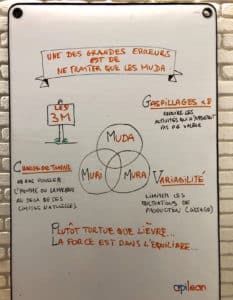 UNE DES GRANDES ERREURS
EST DE
NE TRAITER QUE LES MUDA
LES
3M
GASPILLAGES x8
RÉDUIRE LES
ACTIVITÉS QUI N'APPORTENT
PAS DE VALEUR
MUDA
MURI
MURA
CHARGE DE TRAVAIL
NE PAS POUSSER
L'HOMME OU LA MACHINE
AU DELÀ DE SES
LIMITES NATURELLES
VARIABILITÉ
LIMITER LES
FLUCTUATIONS DE
PRODUCTION (LISSAGE)
PLUTÔT TORTUE QUE LIÈVRE...
LA FORCE EST DANS L'ÉQUILIBRE...
apilean